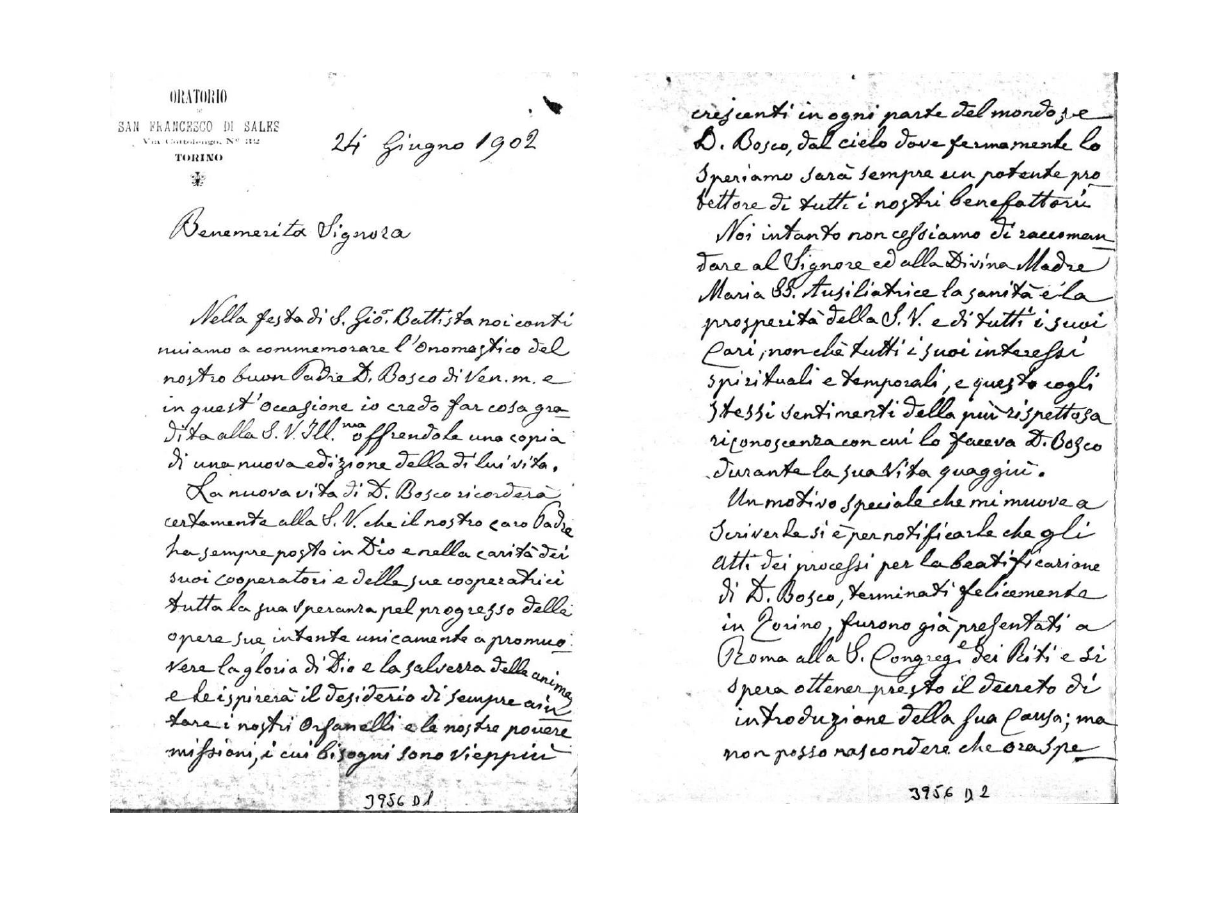 ORATORIO
DI
SAN FRANCESCO DI SALES
Via Cottolengo, N° 32
TORINO
24 Giugno 1902
Benemerita Signora
Nella festa di S. Gio. Battista noi conti
nuiamo a commemorare l'Onomastico del
nostro buon Padre D. Bosco di Ven. m. e
in quest'occasione io credo far cosa gra_
dita alla S. V. Ill.ma offrendole una copia
di una nuova edizione della di lui vita.
La nuova vita di D. Bosco ricorderà
certamente alla S. V. che il nostro caro Padre
ha sempre posto in Dio e nella carità dei
suoi cooperatori e delle sue cooperatrici
tutta la sua speranza pel progresso delle
opere sue intente unicamente a promuo_
vere la gloria di Dio e la salvezza delle anime
e le ispirerà il desiderio di sempre aiu_
tare i nostri Orfanelli e le nostre povere
missioni, i cui bisogni sono vieppiù
3956 D1
crescenti in ogni parte del mondo; e
D. Bosco, dal cielo dove fermamente lo
speriamo sarà sempre un potente pro_
tettore di tutti i nostri benefattori.
Noi intanto non cessiamo di raccoman_
dare al Signore ed alla Divina Madre
Maria SS. Ausiliatrice la sanità e la
prosperità della S. V. e di tutti i suoi
Cari, non chè tutti i suoi interessi
spirituali e temporali, e questo cogli
stessi sentimenti della più rispettosa
riconoscenza con cui lo faceva D. Bosco
durante la sua Vita quaggiù.
Un motivo speciale che mi muove a
Scriverle si è per notificarle che gli
Atti dei processi per la beatificazione
di D. Bosco, terminati felicemente
in Torino, furono già presentati a
Roma alla S. Congreg.e dei Riti e si
spera ottener presto il decreto di
introduzione della sua Causa; ma
non posso nascondere che ora spe_
3956 D2